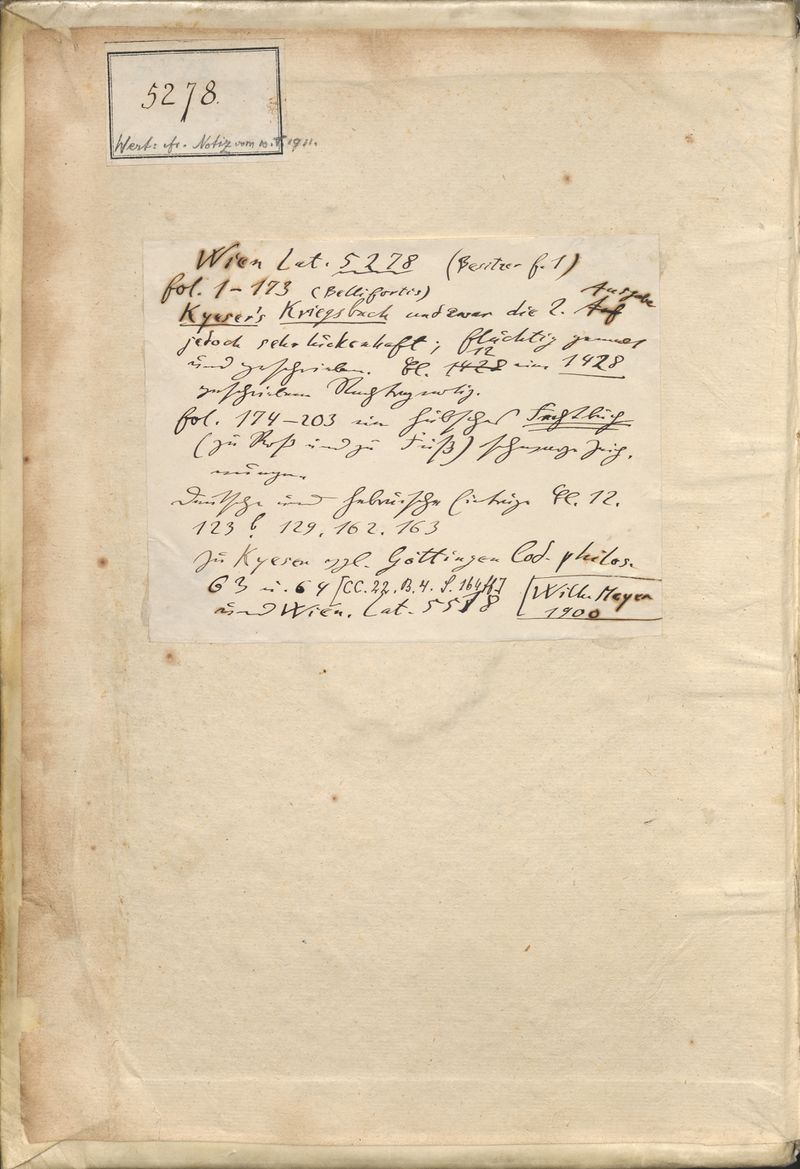 5278.
Wert: cfr. Notiz vom 10. V. 1911.
Wien Lat. 5278 (Besitzer f. 1)
fol. 1–173 (Bellifortis) Ausgabe
Kyeser's Kriegsbuch und zwar die 2. Auf
jedoch sehr lückenhaft; flüchtig gemalt
und geschrieben. Bl. 1428 12 eine 1428
geschriebene
fol. 174–203 ein hübsches Fechtbuch
(zu Roß und zu Fuß) schwarze Zeich-
nungen.
Deutsche und hebräische Einträge Bl. 12.
123 b. 129. 162. 163
Zu Kyeser vgl. Göttingen Cod. philos.
63 u. 64 [CC. 22. B. 4. S. 164ff]
und Wien. Lat. 5518 [Wilh. Meyer
1900